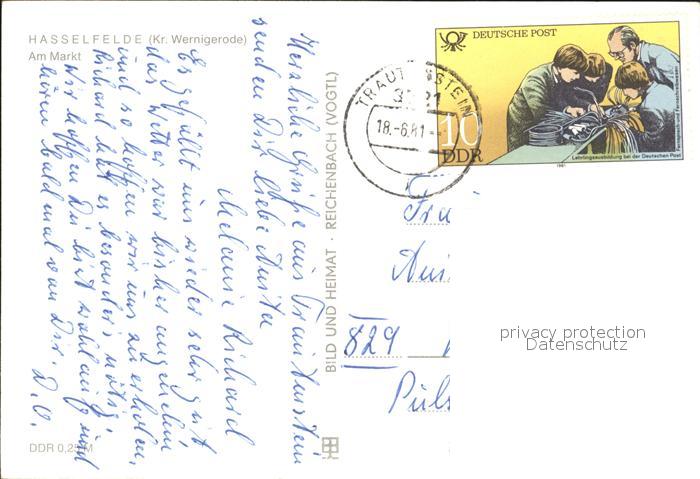 HASSELFELDE (Kr. Wernigerode)
Am Markt
Herzliche Grüße aus Trautenstein
senden Dir liebe Anita
Melanie Richard
Es gefällt uns wieder sehr gut,
das Wetter war bisher angenehm
und so hoffen wir uns zu erholen.
Richard hätt es besonders nötig.
Wir hoffen Du bist wohlauf und
hören bald mal von Dir. D.O.
DDR 0,25 M
BILD UND HEIMAT · REICHENBACH (VOGTL)
TRAUTENSTEIN
18.-6.81
DEUTSCHE POST
10
DDR
Lehrlingsausbildung bei der Deutschen Post
Fernsprech- und Fernschreibwesen
1981
829
privacy protection
Datenschutz